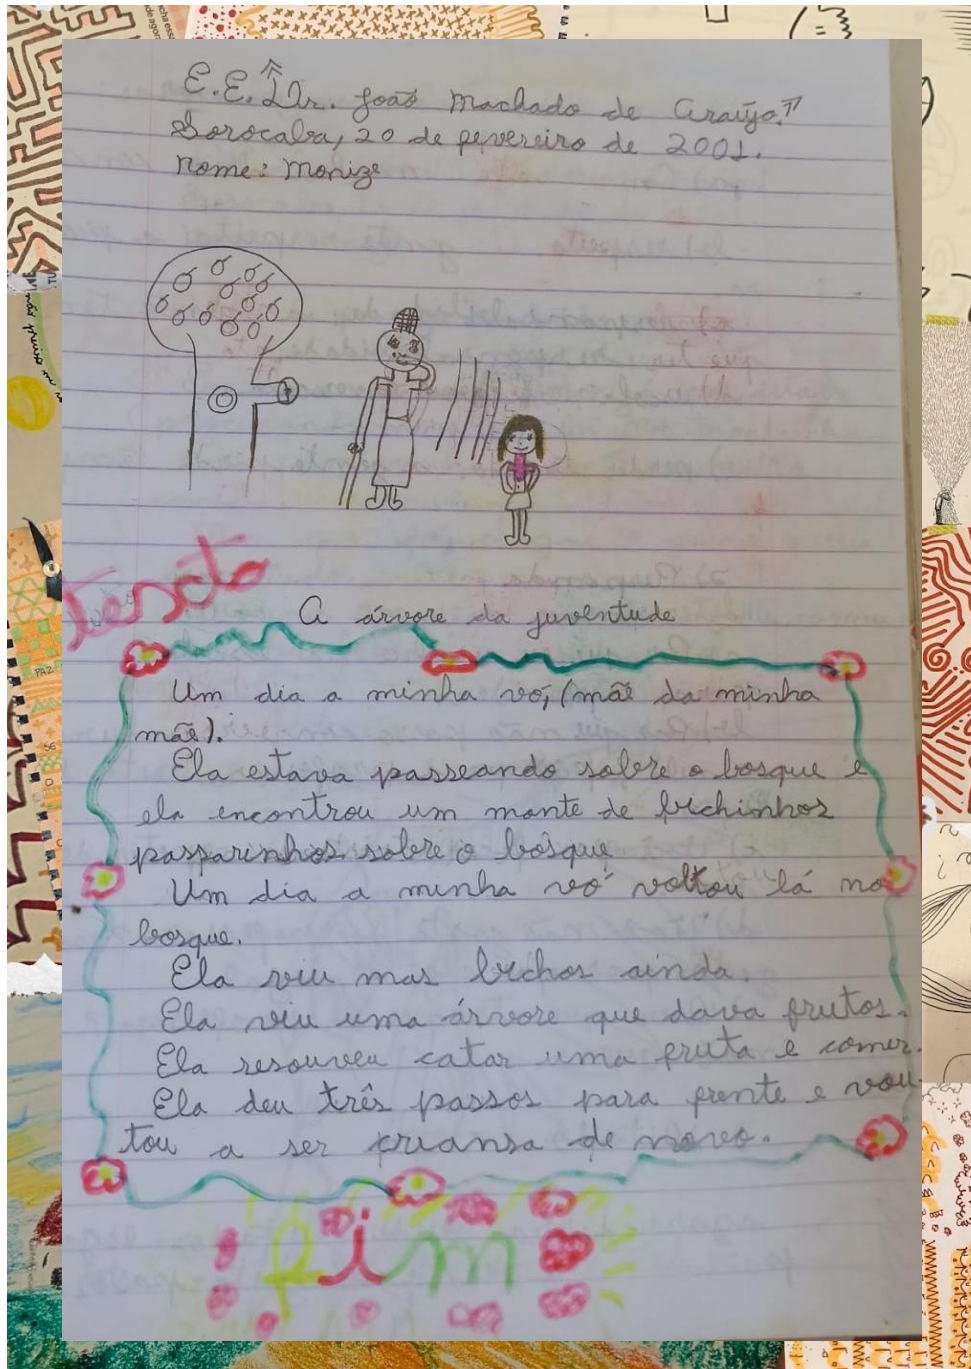 E.E. "Dr. João Machado de Araújo."
Sorocaba, 20 de fevereiro de 2001.
Nome: Monize
testo
A árvore da juventude
Um dia a minha vó, (mãe da minha
mãe).
Ela estava passeando sobre o bosque e
ela encontrou um monte de bichinhos
passarinhos sobre o bosque
Um dia a minha vó voltou lá no
bosque.
Ela viu mas bichos ainda.
Ela viu uma árvore que dava frutos.
Ela resouveu catar uma fruta e comer.
Ela deu três passos para frente e vou-
tou a ser criansa de novo.
fim